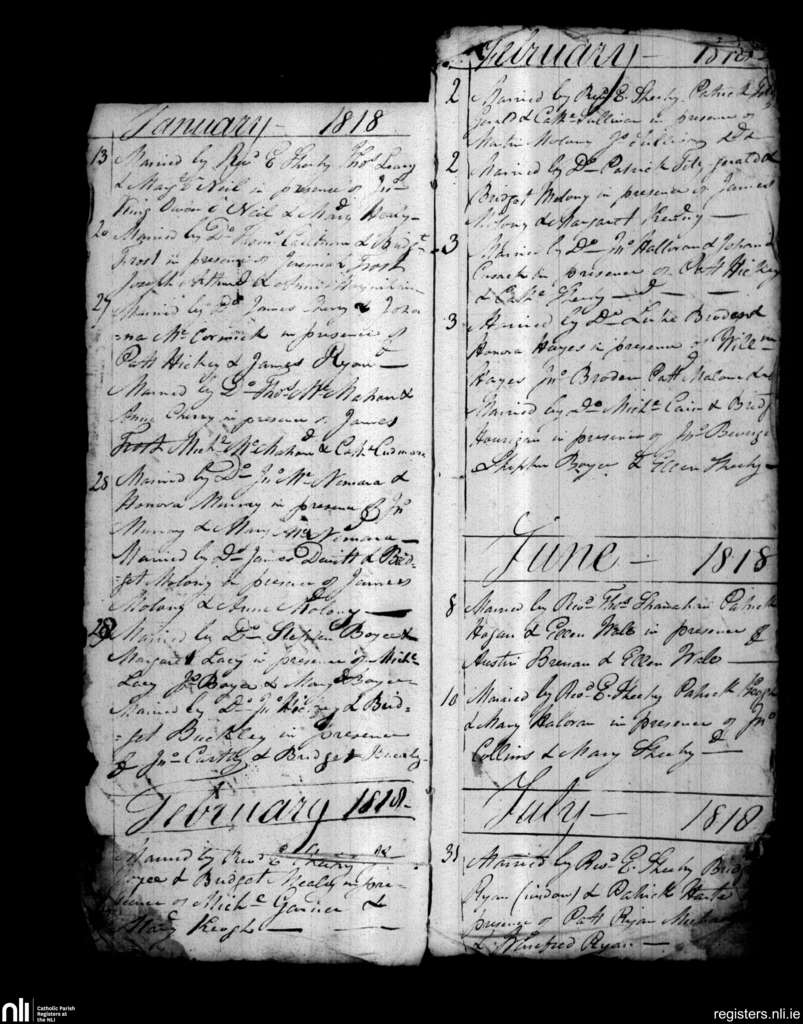 January 1818
13 Married by Revd E Sheehy Thos Leary
& Margt Neil in presence of Jno
King Owen O Neil & Mary
20 Married by Do Thoms & Bridgt
Frost in presence of Jeremiah Frost
Joseph
27 Married by Do James & Joha
=na Mc Cormick in presence of
Patt Hickey & James Ryan
Married by Do Thos Mc Mahon &
Anne Cherry in presence of James
Frost Michl Mc Mahon & Cathe
28 Married by Do Jno Mc Nemara &
Honora Murray in presence of Jno
Murray & Mary Mc Nemara
Married by Do James Davitt & Brid-
=get Molony in presence of James
Molony & Anne Molony
Married by Do Stephen Boyce &
Margaret Lacy in presence of Michl
Lacy Jno Boyce & Mary Boyce
Married by Do Jno & Brid-
=get Buckley in presence
of Jno & Bridget
February 1818
Married by Revd E Sheehy
& Bridget Mealy in pre-
sence of Michl Garner &
Mary Keogh
February 1818
2 Married by Revd E. Sheehy Patrick Fitz
gerald & Cathe Sullivan in presence of
Martin Molony Jno
2 Married by Do Patrick Fitz gerald &
Bridget Molony in presence of James
Molony & Margaret
3 Married by Do Jno Halloran & Johana
Cusack in presence of Patt Hickey
& Cathe Sheehy
3 Married by Do Luke Broder &
Honora Hayes in presence of Willm
Hayes Jno Broder Patt Malone &c
Married by Do Michl Cain & Bridgt
Hourigan in presence of Jno
Stephen Boyce & Ellen Sheehy
June 1818
8 Married by Revd Thos Shanahan Patrick
Hogan & Ellen Wale in presence of
Austin Brenan & Ellen Wale
10 Married by Revd E. Sheehy Patrick
& Mary Haloran in presence of Jno
Collins & Mary Sheehy
July 1818
31 Married by Revd E. Sheehy Bridgt
Ryan (widow) & Patrick
presence of Patt Ryan
& Winefred Ryan
nli
Catholic Parish
Registers at
the NLI
registers.nli.ie